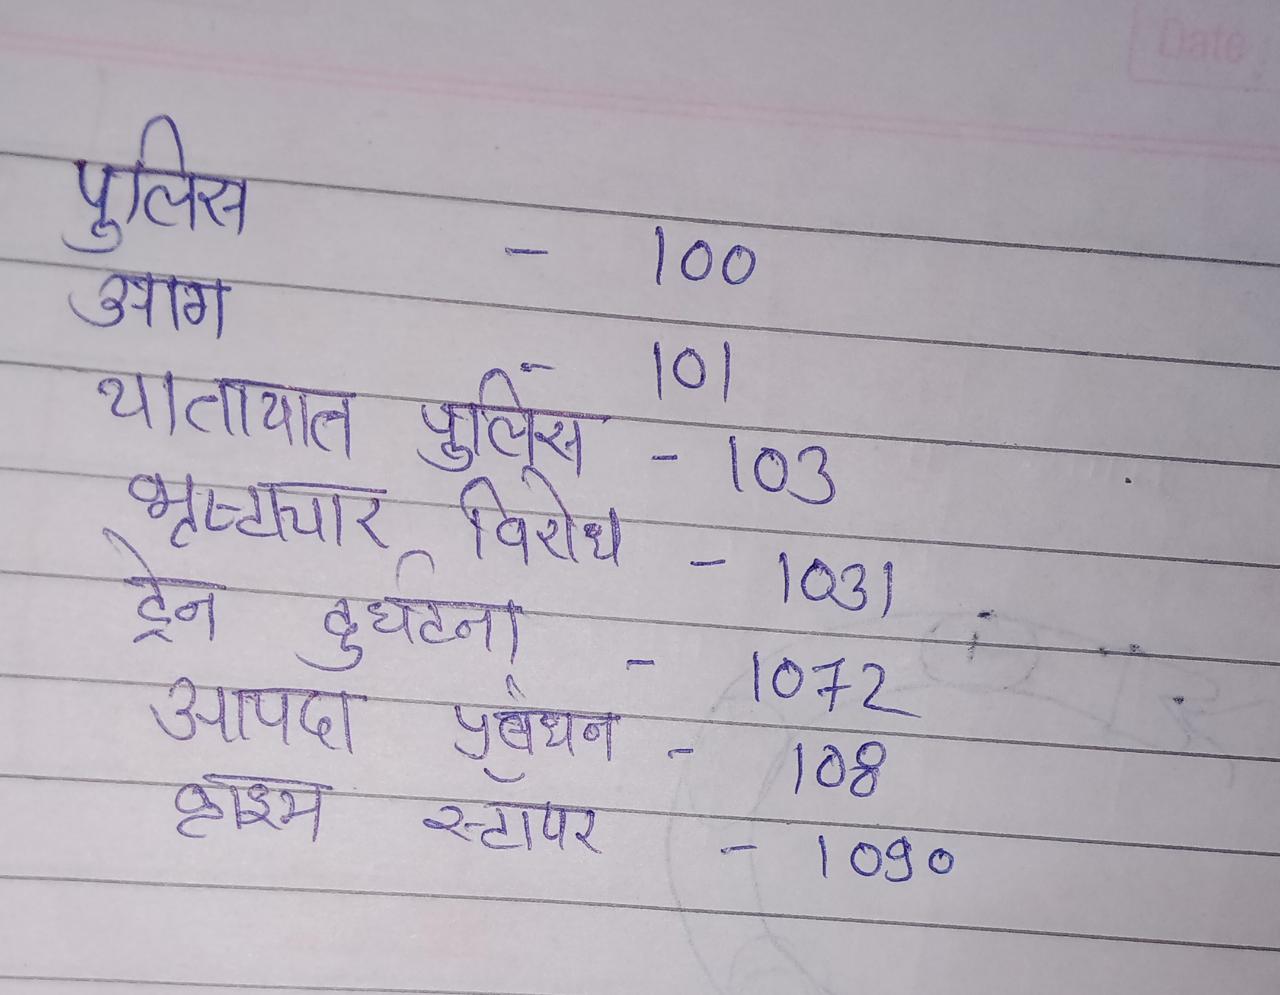 Date
पुलिस - 100
आग - 101
यातायात पुलिस - 103
भृष्टाचार विरोध - 1031
ट्रेन दुर्घटना - 1072
आपदा प्रबंधन - 108
क्राइम स्टॉपर - 1090